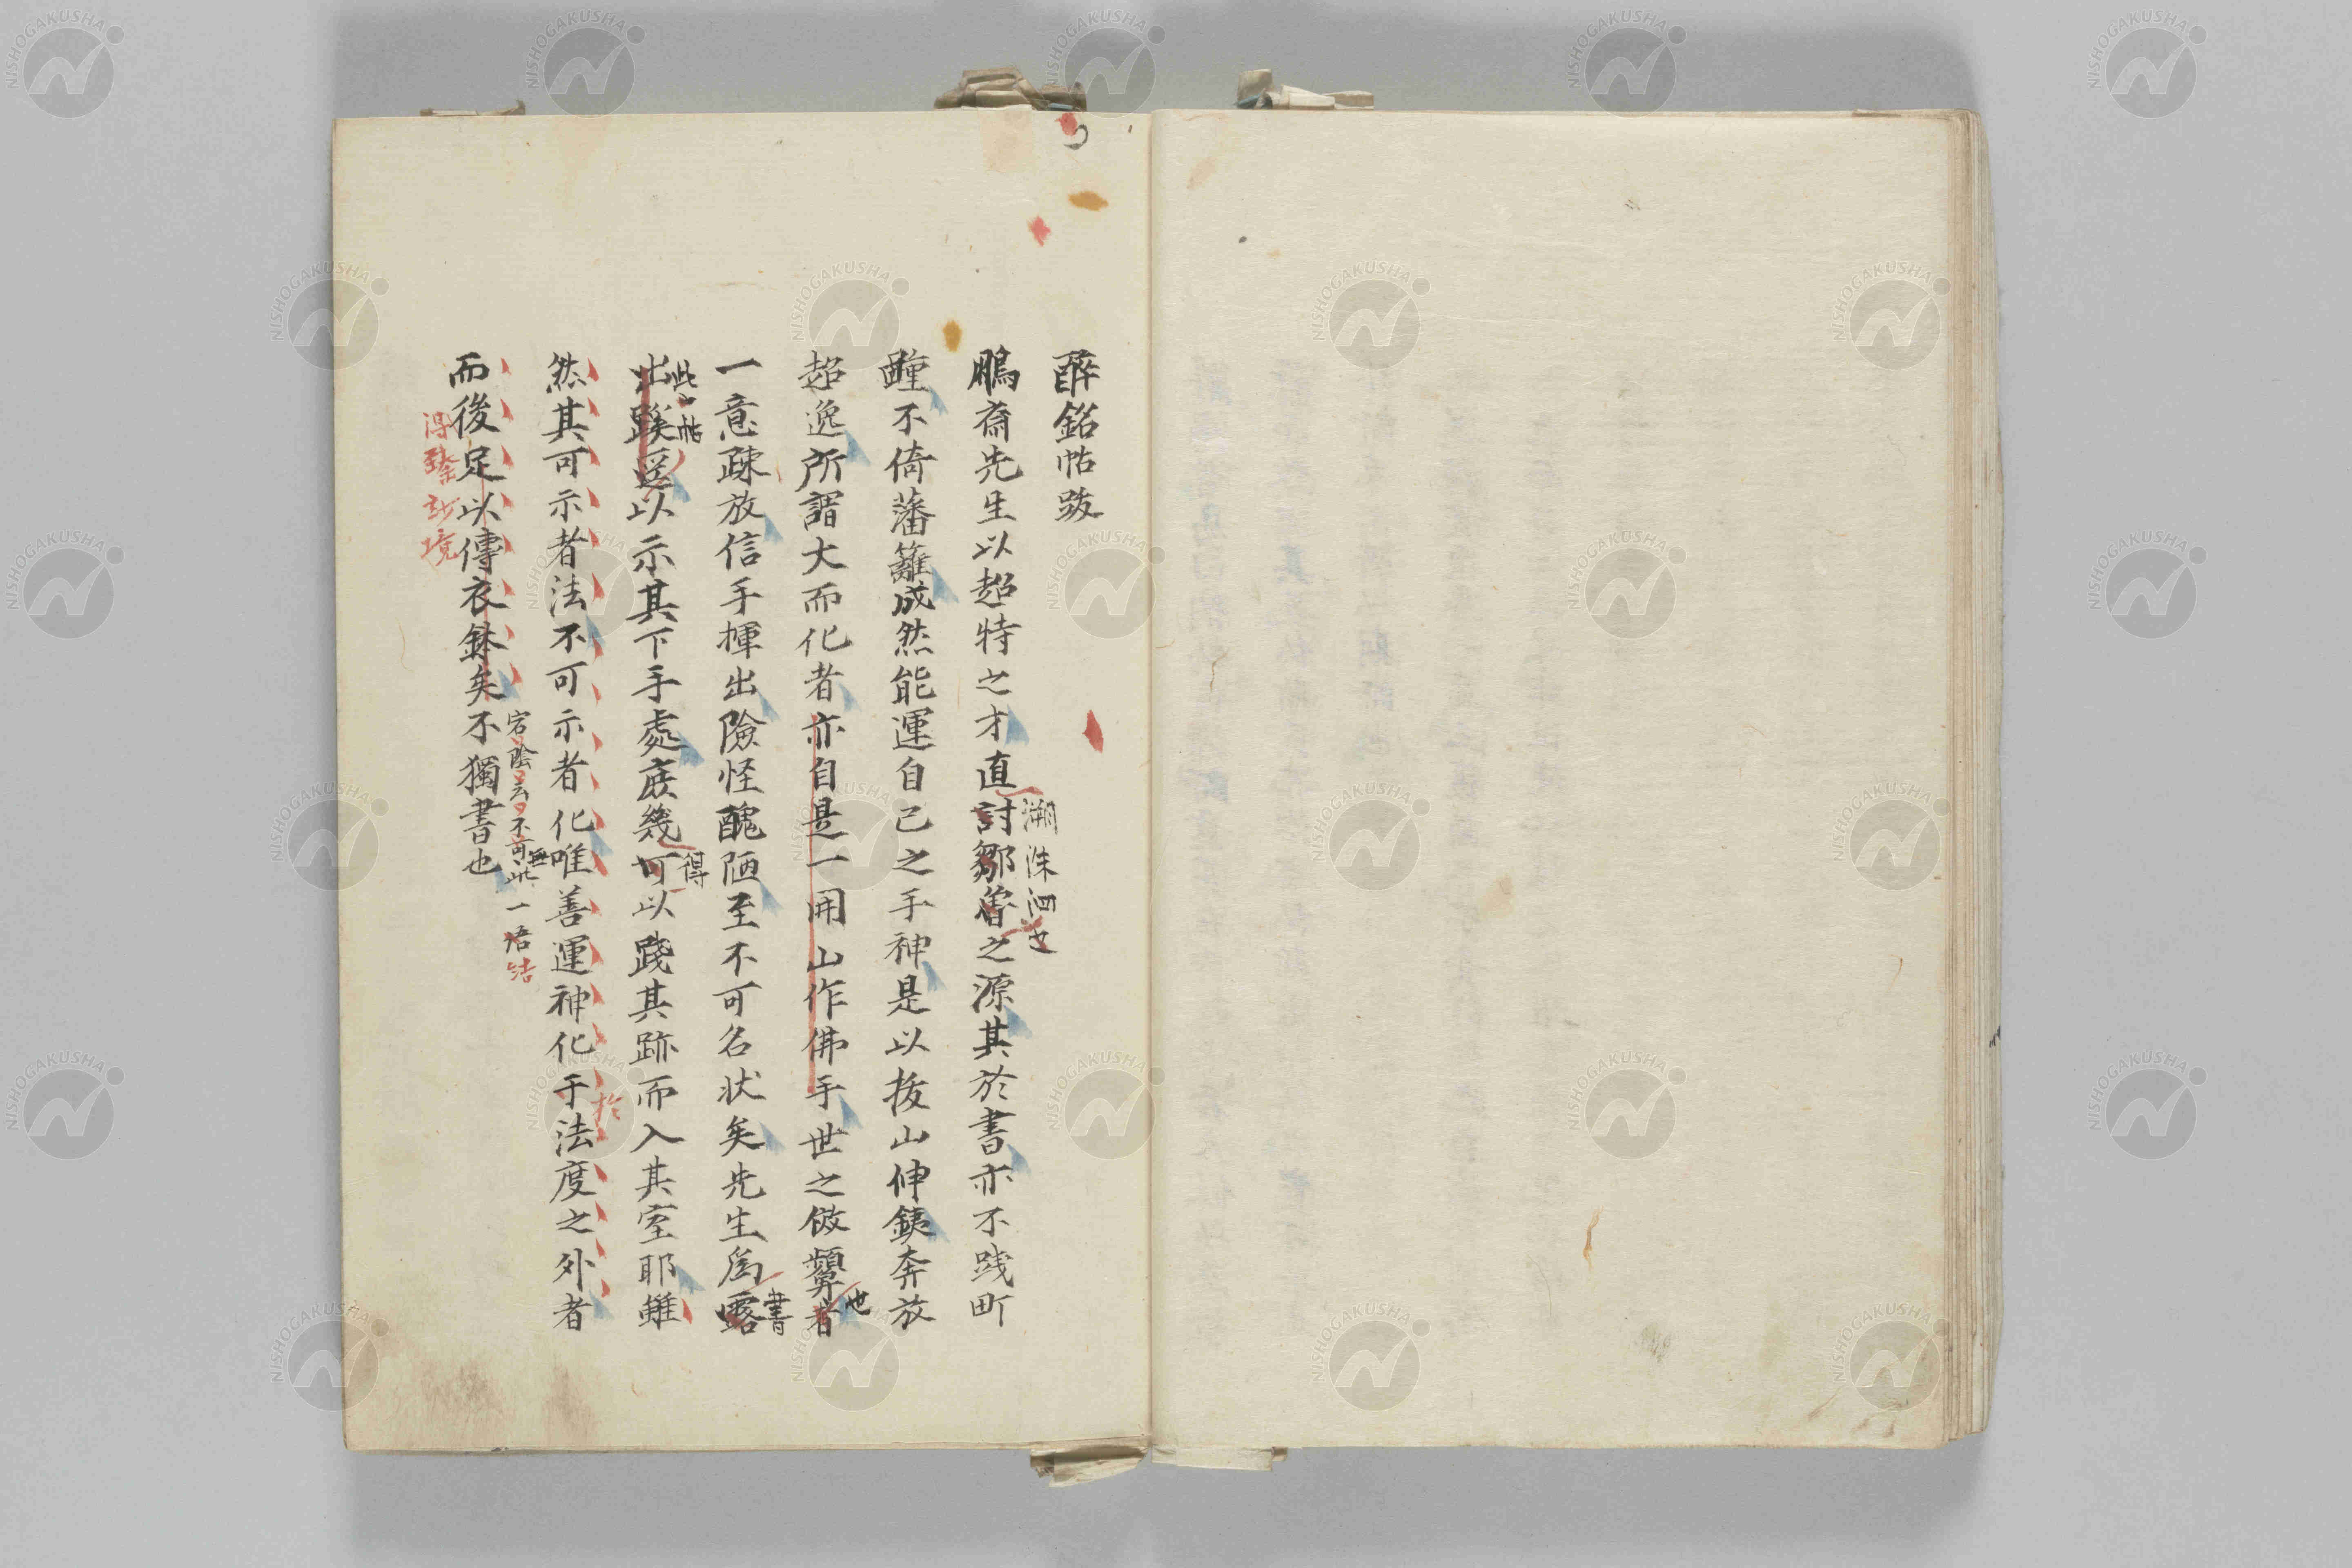 醉銘帖跋
鵬齋先生以超特之才直討鄒魯之源其於書亦不践町
溯洙泗也
畽不倚藩籬成然能運自己之手神是以拔山伸鐵奔放
超逸所謂大而化者亦自是一開山作佛手世之倣顰者
也
一意踈放信手揮出險怪醜陋至不可名状矣先生爲露
書
出蹊逕以示其下手處庶幾可以踐其跡而入其室耶雖
此帖
得
然其可示者法不可示者化唯善運神化于法度之外者
於
而後足以傳衣鉢矣不獨書也
宕陰云不可無此一語結
得臻妙境
NISHOGAKUSHA